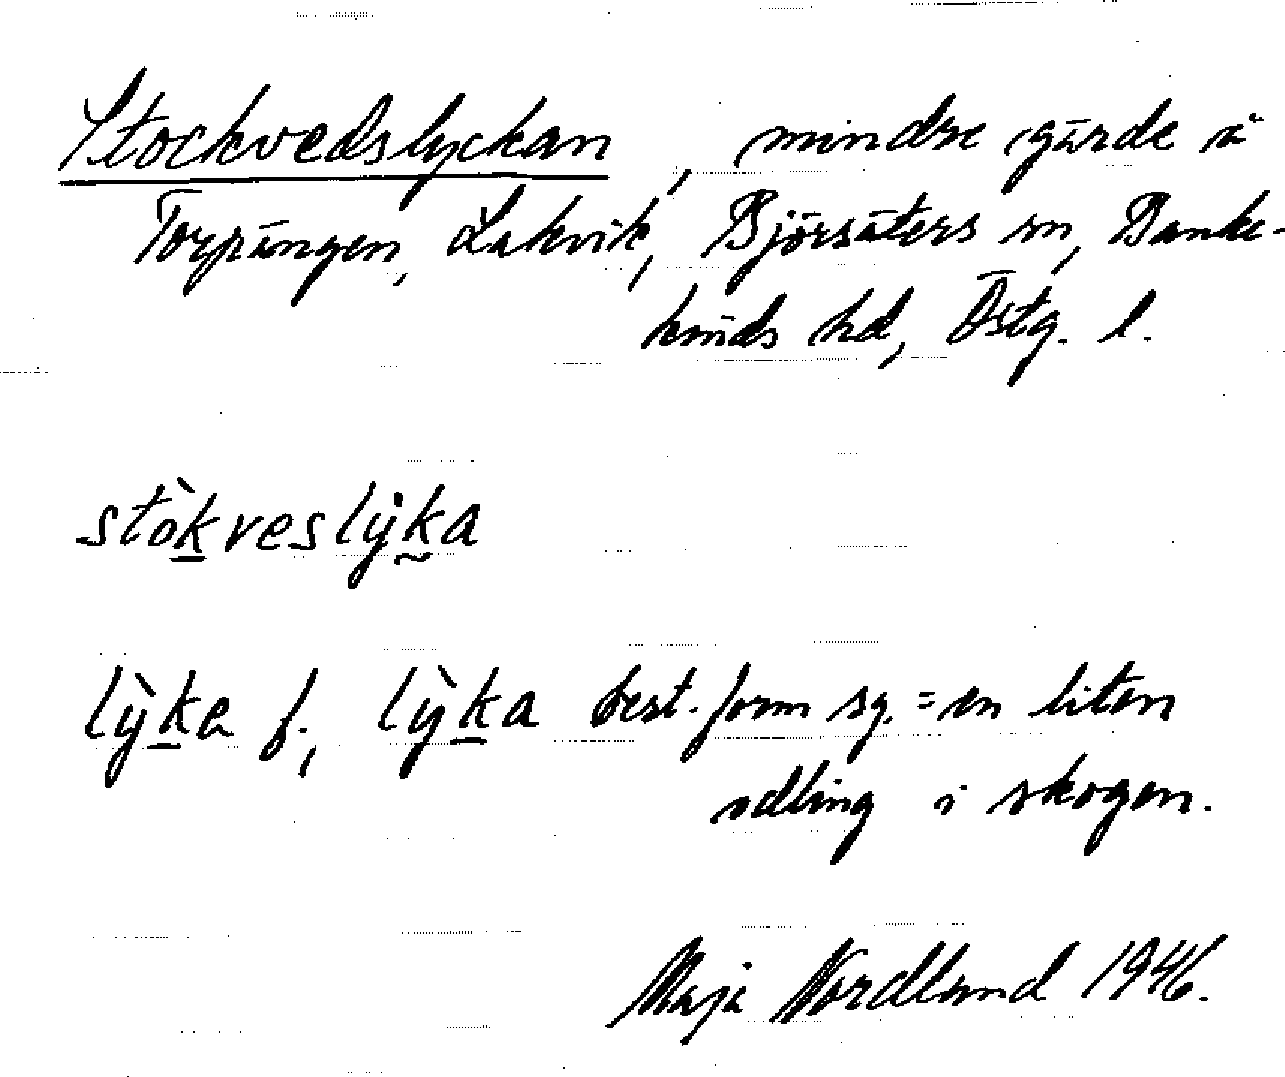 Stockvedslyckan, mindre gärde å
Torpängen, Lakvik, Björsäters sn, Banke-
kinds hd, Östg. l.
stòkveslỳka
lỳka f., lỳka best. form sg. = en liten
odling i skogen.
Maja Nordlund 1946.